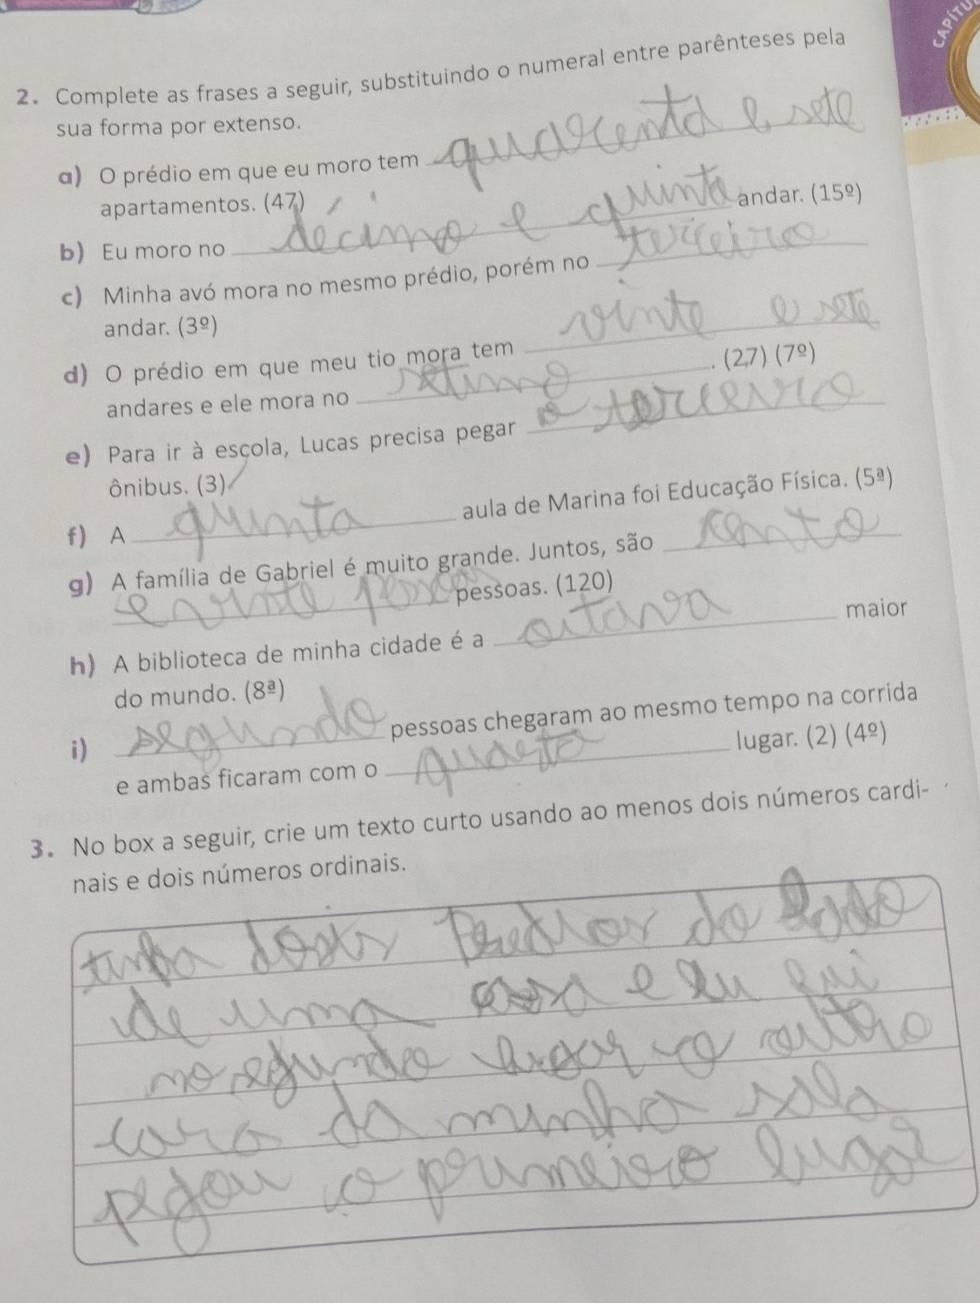 CAPÍTU
2. Complete as frases a seguir, substituindo o numeral entre parênteses pela
sua forma por extenso.
a) O prédio em que eu moro tem quarenta e sete
apartamentos. (47)
b) Eu moro no décimo e quinto andar. (15º)
c) Minha avó mora no mesmo prédio, porém no terceiro
andar. (3º)
d) O prédio em que meu tio mora tem vinte e sete
andares e ele mora no setimo . (27) (7º)
e) Para ir à escola, Lucas precisa pegar o terceiro
ônibus. (3)
f) A quinta aula de Marina foi Educação Física. (5ª)
g) A família de Gabriel é muito grande. Juntos, são cento
e vinte pessoas. (120)
h) A biblioteca de minha cidade é a oitava maior
do mundo. (8ª)
i) segundo pessoas chegaram ao mesmo tempo na corrida
e ambas ficaram com o quarto lugar. (2) (4º)
3. No box a seguir, crie um texto curto usando ao menos dois números cardi-
nais e dois números ordinais.
do lado
de uma e eu fui
no segundo lugar o outro
cara da minha sala
pegou o primeiro lugar